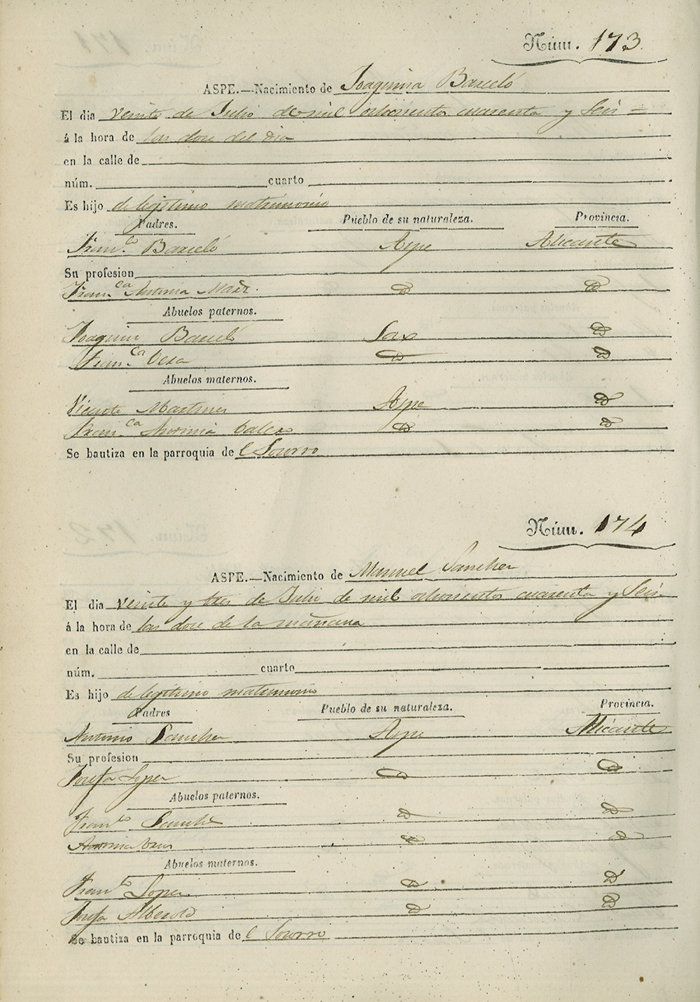 Núm. 173
ASPE.—Nacimiento de Joaquina Barceló
El dia veinte de Julio de mil ochocientos cuarenta y Seis
á la hora de las doce del dia
en la calle de
núm. cuarto
Es hijo de legitimo matrimonio
Padres. Pueblo de su naturaleza. Provincia.
Fran.co Barceló Aspe Alicante
Su profesion
Fran.ca Antonia D D
Abuelos paternos.
Joaquin Barceló Sax D
Fran.ca Vera D D
Abuelos maternos.
Vicente Martinez Aspe D
Fran.ca Antonia D D
Se bautiza en la parroquia de l Socorro
Núm. 174
ASPE.—Nacimiento de Manuel Sanchez
El dia veinte y tres de Julio de mil ochocientos cuarenta y Seis
á la hora de las doce de la mañana
en la calle de
núm. cuarto
Es hijo de legitimo matrimonio
Padres Pueblo de su naturaleza. Provincia.
Antonio Sanchez Aspe Alicante
Su profesion
Josefa Lopez D D
Abuelos paternos.
Fran.co Sanchez D D
Antonia D D
Abuelos maternos.
Fran.co Lopez D D
Josefa Alberola D D
Se bautiza en la parroquia de l Socorro